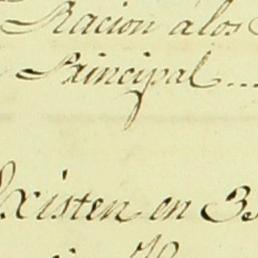 Racion á los
Principal...
Existen en 3